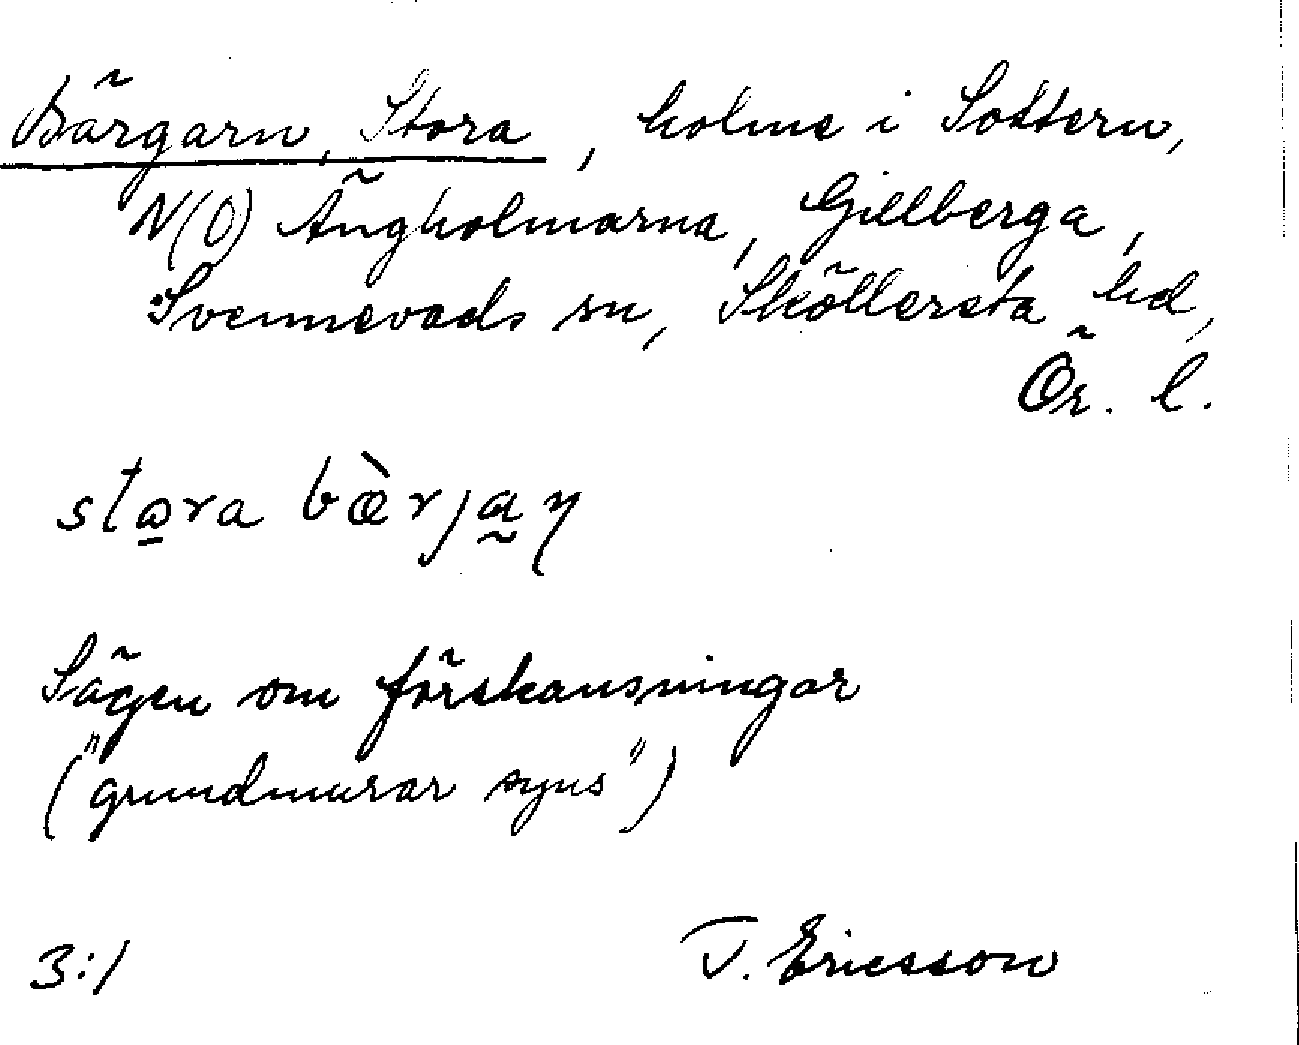 Bärgarn, Stora, holme i Sottern,
N(O) Ängholmarna, Gillberga,
Svennevads sn, Sköllersta hd,
Ör. l.
stara bœ̀rjaŋ
Sägen om förskansningar
("grundmurar syns")
3:1 T. Ericsson